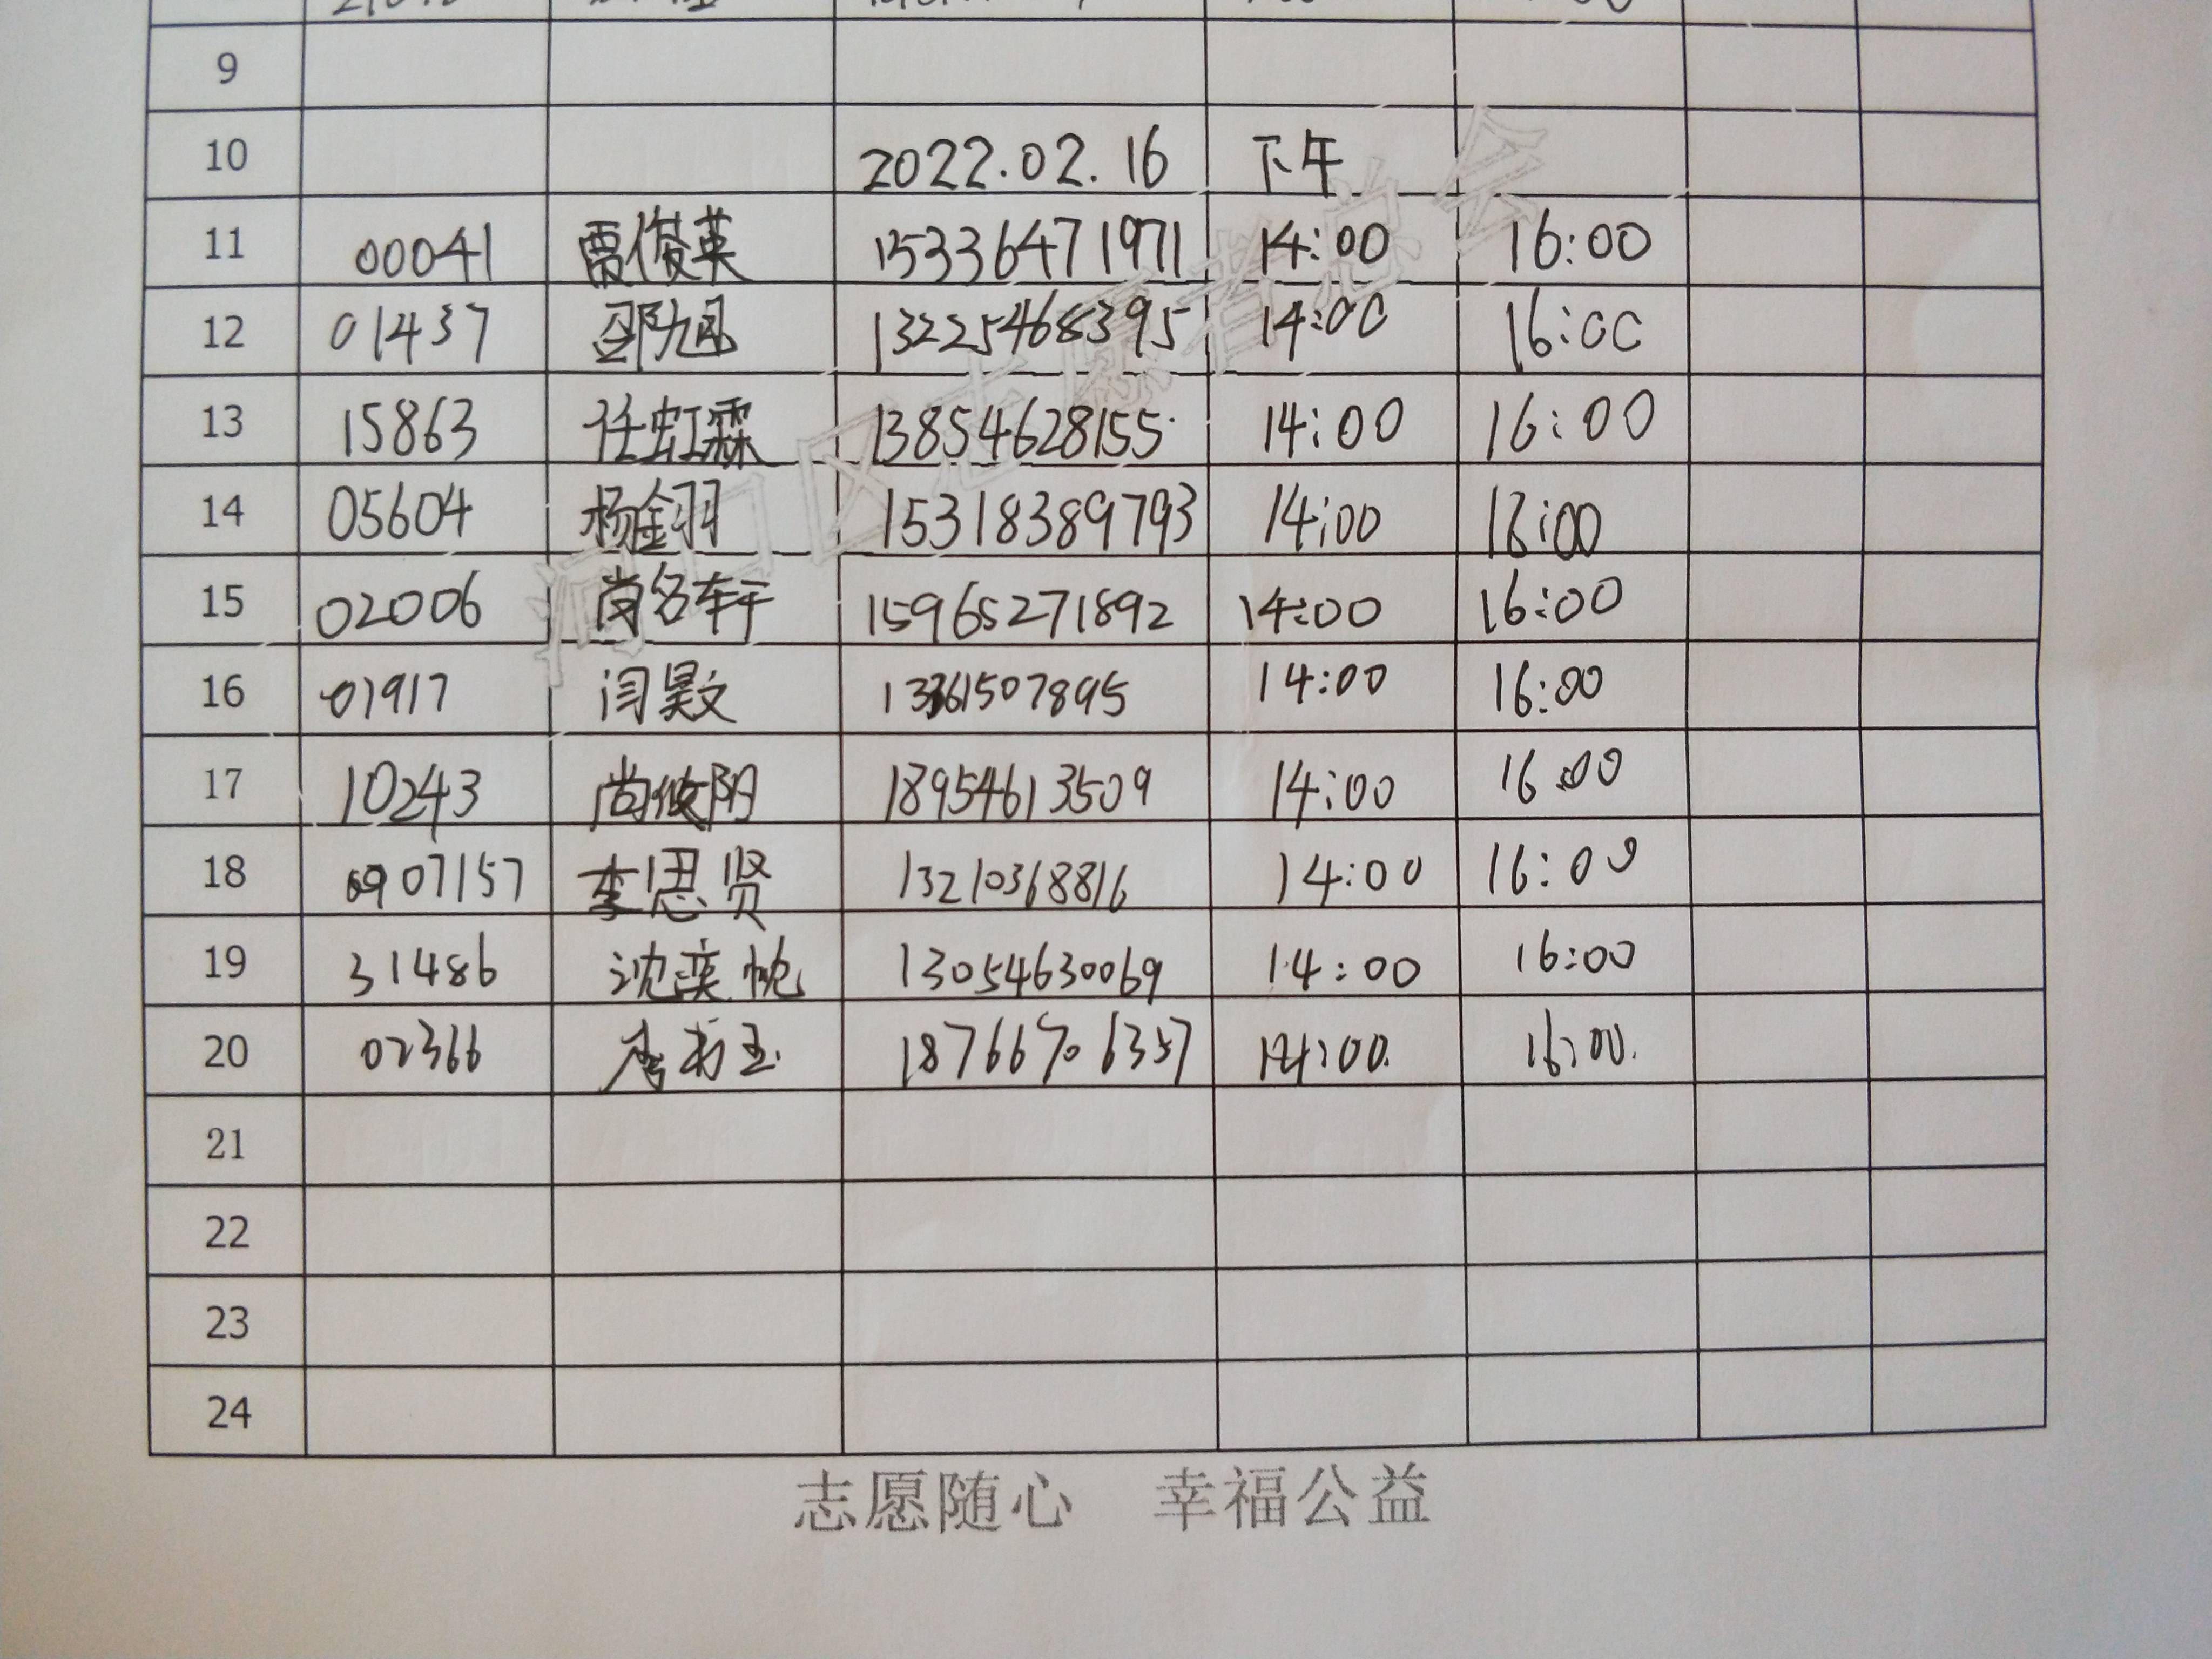 9
10 2022.02.16 下午
11 00041 贾俊英 15336471971 14:00 16:00
12 01437 邵旭 13225468395 14:00 16:00
13 15863 任虹霖 13854628155 14:00 16:00
14 05604 杨鈅羽 15318389793 14:00 16:00
15 02006 尚名轩 15965271892 14:00 16:00
16 01917 闫昊文 13361507895 14:00 16:00
17 10243 尚攸阴 18954613509 14:00 16:00
18 0907157 李思贤 13210368816 14:00 16:00
19 31486 沈奕帆 13054630069 14:00 16:00
20 02366 18766706357 14:00 16:00
21
22
23
24
河口区志愿者总会
志愿随心 幸福公益